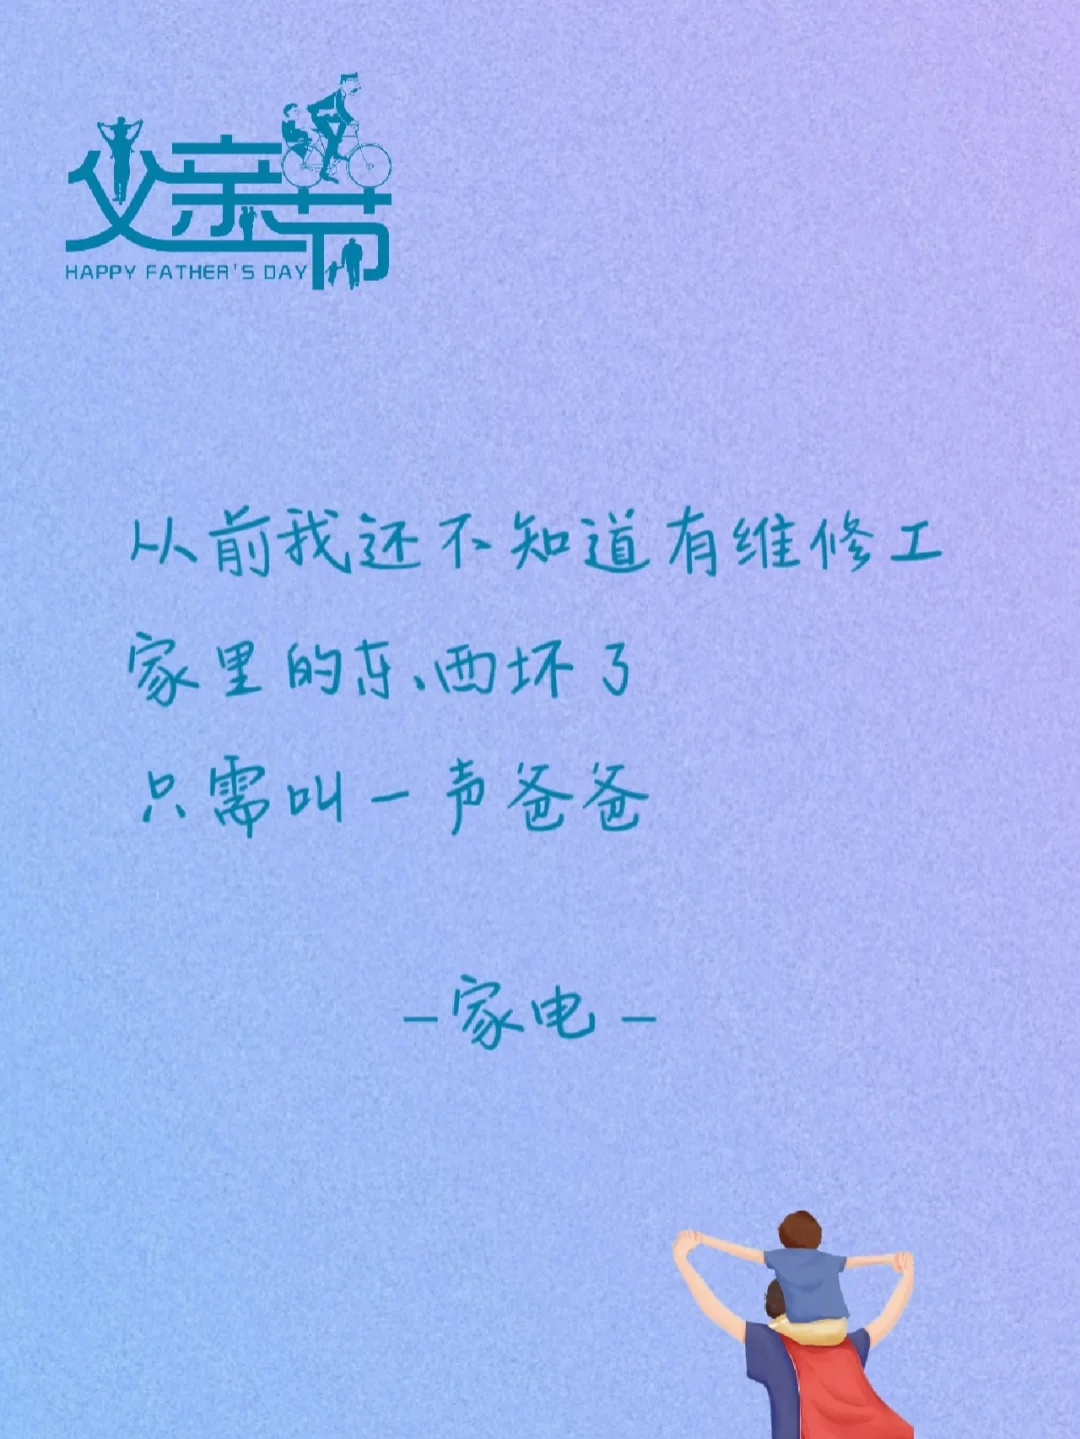 父亲节
HAPPY FATHER'S DAY
从前我还不知道有维修工
家里的东西坏了
只需叫一声爸爸
-家电-